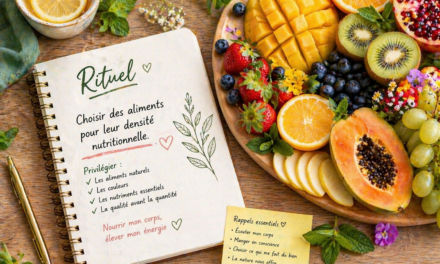 Rituel
Choisir des aliments
pour leur densité
nutritionnelle.
Privilégier :
✓ Les aliments naturels
✓ Les couleurs
✓ Les nutriments essentiels
✓ La qualité avant la quantité
Nourrir mon corps,
élever mon énergie
Rappels essentiels ♡
• Écouter mon corps
• Manger en conscience
• Choisir ce qui me fait du bien
• La nature nous offre